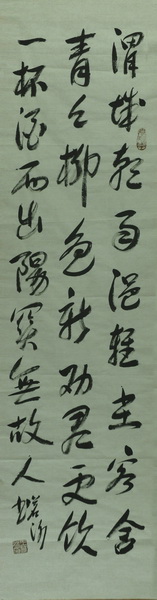 渭城朝雨浥輕塵客舍
青々柳色新勸君更飲
一杯酒西出陽関無故人